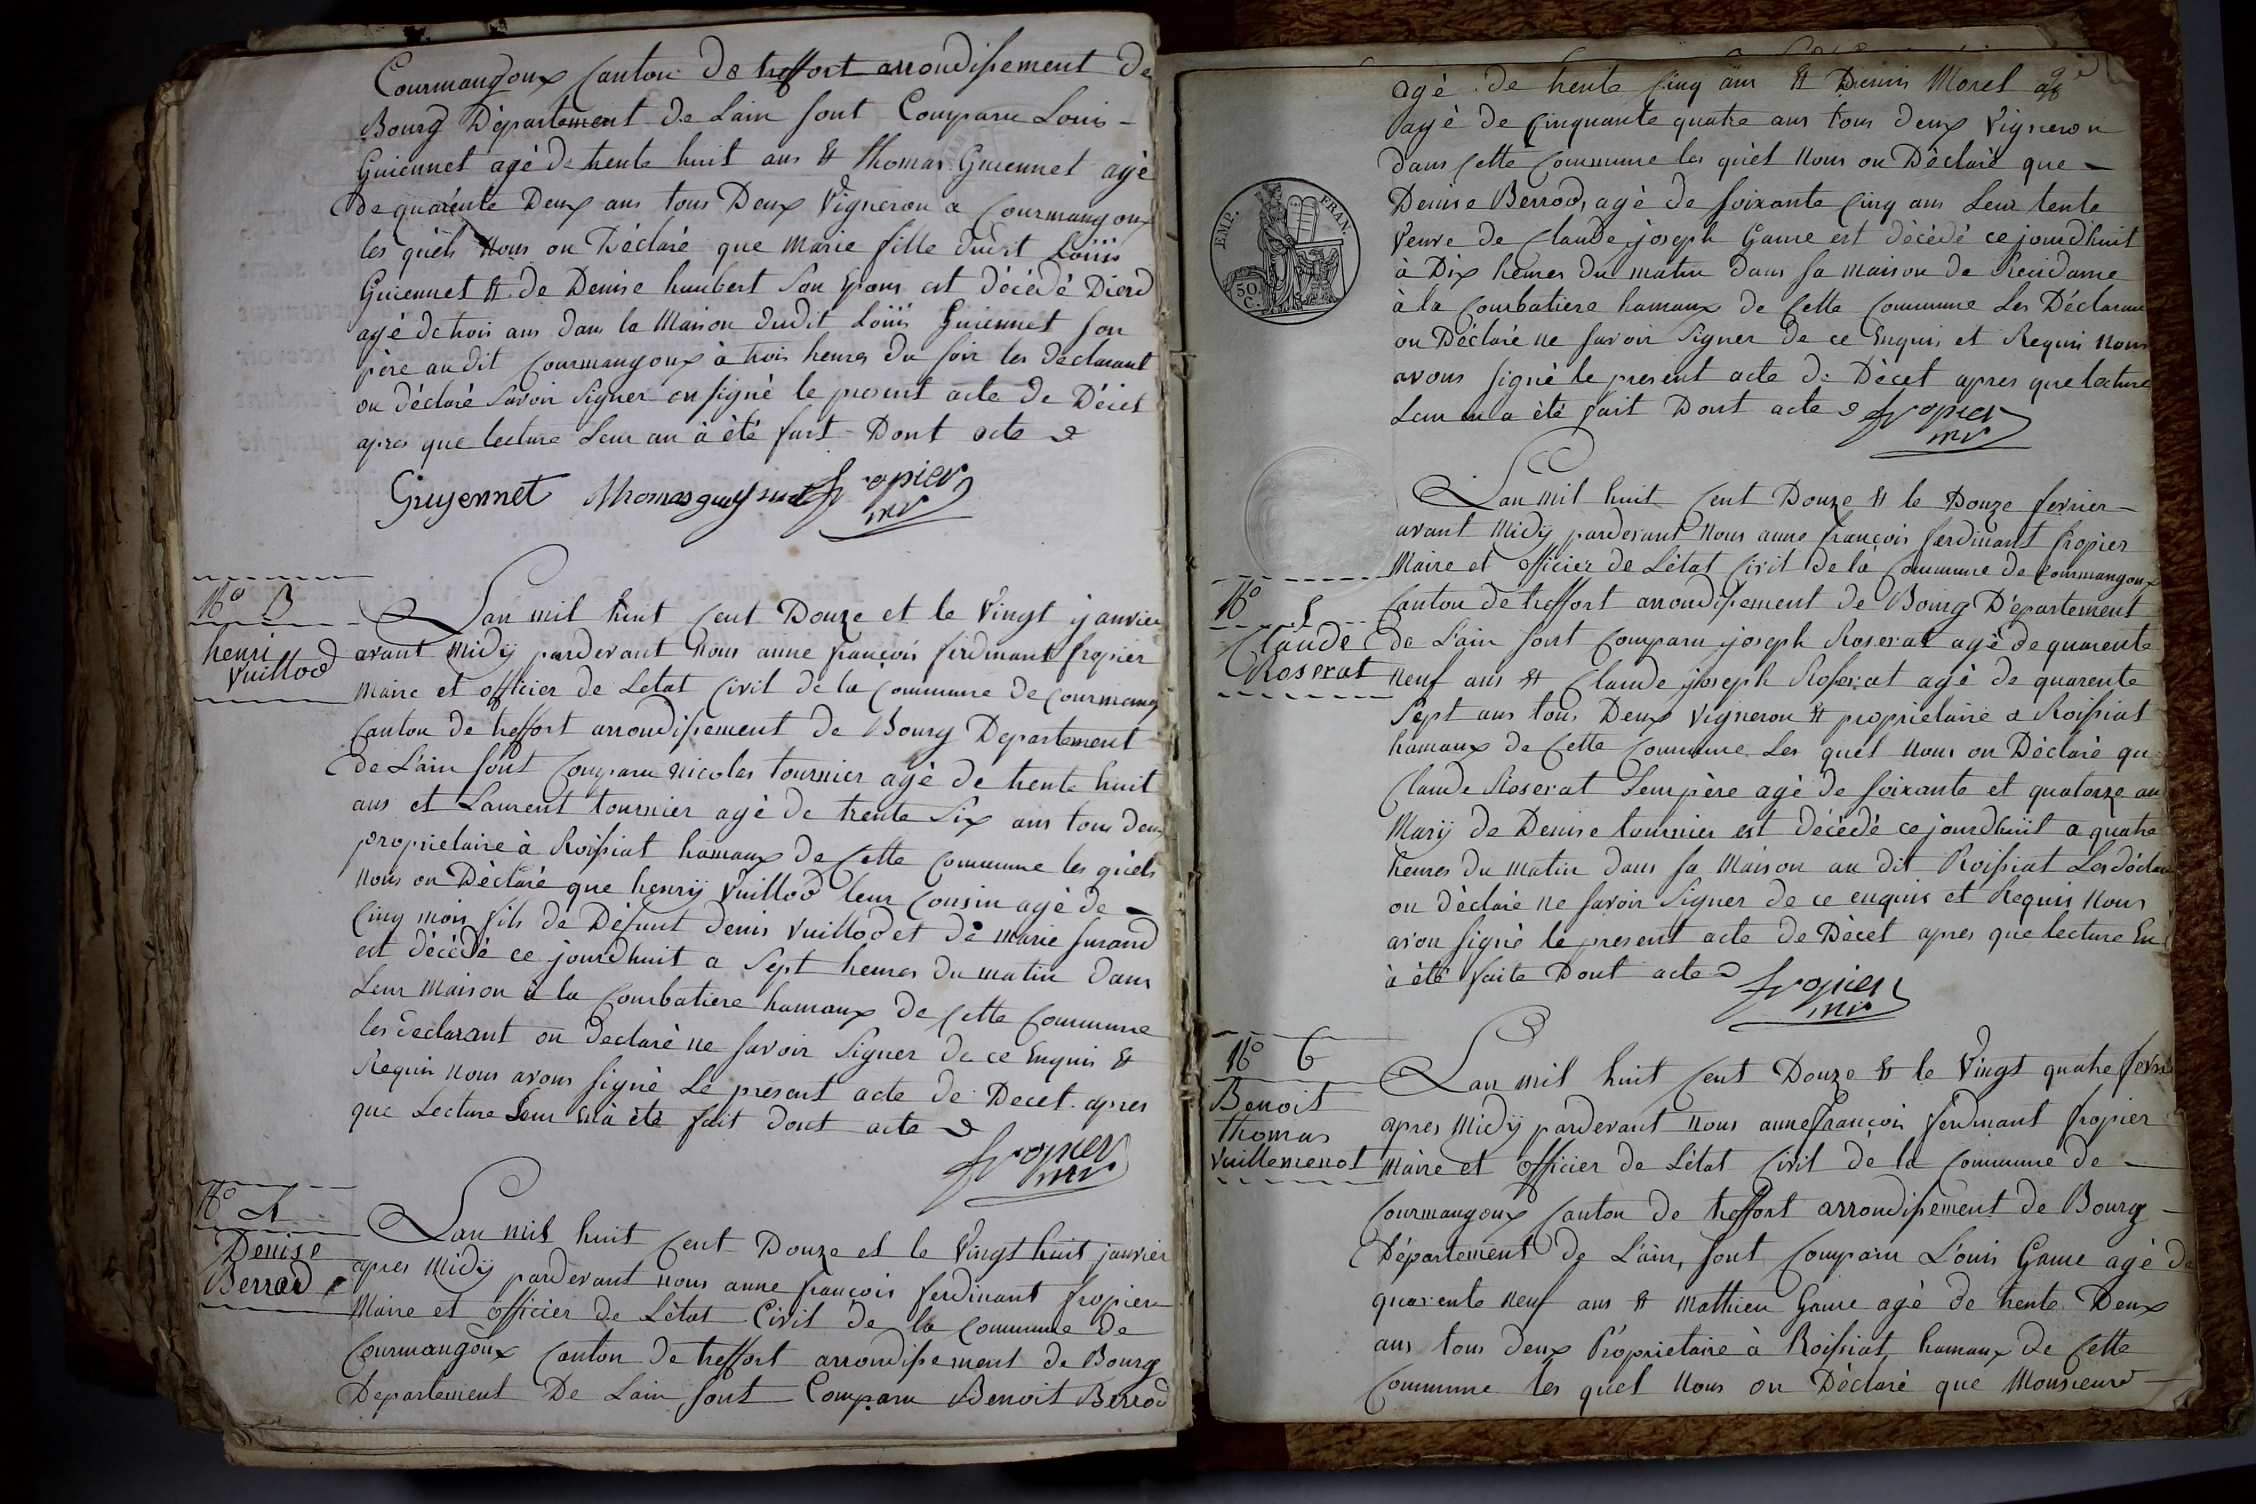 Courmangoux Canton de treffort arrondissement de
Bourg Département de Lain sont Comparu Louis -
Guiennet agé de trente huit ans et thomas Guiennet agé
de quarente Deux ans tous Deux Vigneron a Courmangoux
les quels nous on Déclaré que marie fille dudit Louis
Guiennet et de Denise humbert son Epous est décédé
agé de trois ans dans la Maison dudit Louis Guiennet son
père audit Courmangoux à trois heures du soir les déclarant
on déclaré savoir signer on signé le present acte de Décet
apres que lecture Leur an à été fait - Dont acte
Guyennet Thomas guyennet fropier
mr
N° 3
henri
Vuillod
Lan mil huit Cent Douze et le Vingt janvier
avant midÿ pardevant nous anne françois ferdinant fropier
Maire et officier de Letat Civil de la Commune de Courmang
Canton de treffort arrondissement de Bourg Departement
de Lain sont Comparu nicolas tournier agé de trente huit
ans et Laurent tournier agé de trente Six ans tous deux
proprietaire à Roissiat hamaux de Cette Commune les quels
nous on Déclaré que henrÿ Vuillod leur Cousin agé de -
Cinq mois fils de Défunt denis Vuillod et de marie furand
est décédé ce jourdhuit a Sept heures du matin dans
Leur maison à la Courbatiere hamaux de Cette Commune
les declarant on declaré ne savoir Signer de ce Enquis et
Requis nous avons signé Le present acte de Decet apres
que Lecture Leur en à été fait dont acte
fropier
mr
N° 4
Denise
Berrod
Lan mil huit Cent Douze et le Vingt huit janvier
apres midÿ pardevant nous anne françois ferdinant fropier
Maire et officier de Létat Civil de la Commune de
Courmangoux Canton de treffort arrondissement de Bourg
Departement De Lain sont Comparu Benoit Berrod
agé de trente Cinq ans et Denis Morel agé
agé de Cinquante quatre ans tous deux Vigneron
dans Cette Commune les quel nous on Déclaré que -
Denise Berrod, agé de soixante Cinq ans Leur tente
Veuve de Claude joseph Game est décédé ce jourdhuit
à Dix heures du matin dans sa maison de
à la Courbatiere hamaux de Cette Commune Les Déclarant
on Déclaré ne savoir Signer de ce Enquis et Requis nous
avons signé le present acte de Décet apres que lecture
Leur en a été fait Dont acte fropier
mr
EMP. FRAN.
50 C.
N° 5
Claude
Roserat
Lan mil huit Cent Douze et le Douze fevrier -
avant midÿ pardevant nous anne françois ferdinant fropier
Maire et officier de Létat Civil de la Commune de Courmangoux
Canton de treffort arrondissement de Bourg Département
de Lain sont Comparu joseph Roserat agé de quarente
neuf ans et Claude joseph Roserat agé de quarente
Sept ans tous Deux vigneron et proprietaire a Roissiat
hamaux de Cette Commune Les quel nous on Déclaré que
Claude Roserat Leur père agé de soixante et quatorze an
Marÿ de Denise tournier est décédé ce jourdhuit a quatre
heures du matin dans sa maison au dit Roissiat Les déclarant
on déclaré ne savoir Signer de ce enquis et Requis nous
avon signé le present acte de Décet apres que lecture En
à été faite Dont acte fropier
mr
N° 6
Benoit
thomas
Vuillemenot
Lan mil huit Cent Douze et le Vingt quatre fevri
apres midÿ pardevant nous anne françois ferdinant fropier
maire et officier de Létat Civil de la Commune de -
Courmangoux Canton de treffort arrondissement de Bourg -
Département de Lain, sont Comparu Louis Game agé de
quarente neuf ans et mathieu Game agé de trente Deux
ans tous deux Proprietaire à Roissiat hamaux de Cette
Commune les quel nous on Déclaré que Monsieurs -